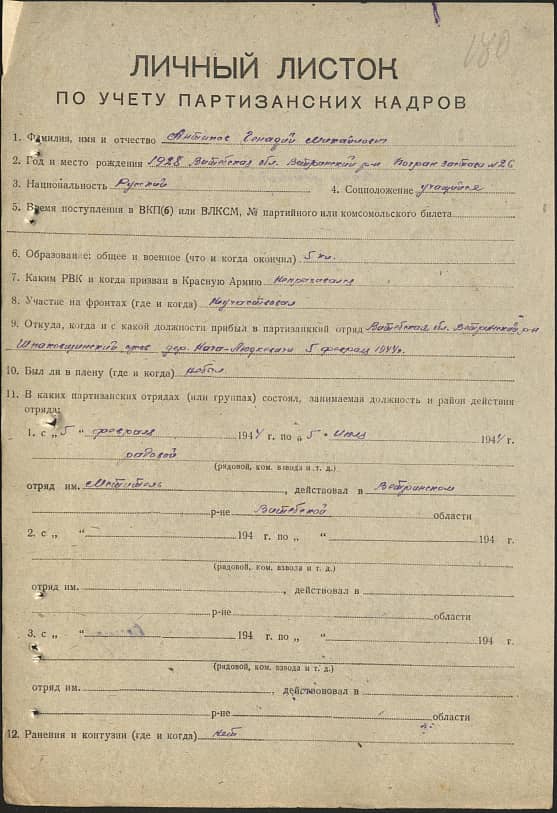 180
ЛИЧНЫЙ ЛИСТОК
ПО УЧЕТУ ПАРТИЗАНСКИХ КАДРОВ
1. Фамилия, имя и отчество Антипов Генадий Михайлович
2. Год и место рождения 1928 Витебская обл. Ветринский р-н Погран застава № 26
3. Национальность Русский 4. Соцположение учащийся
5. Время поступления в ВКП(б) или ВЛКСМ, № партийного или комсомольского билета
6. Образование: общее и военное (что и когда окончил) 5 кл.
7. Каким РВК и когда призван в Красную Армию
8. Участие на фронтах (где и когда) Неучаствовал
9. Откуда, когда и с какой должности прибыл в партизанский отряд Витебская обл. Ветринский р-н
дер. 5 февраля 1944г.
10. Был ли в плену (где и когда) небыл
11. В каких партизанских отрядах (или группах) состоял, занимаемая должность и район действия
отряда:
1. с „ 5 “ февраля 1944 г. по „ 5 “ 1944 г.
рядовой
(рядовой, ком. взвода и т. д.)
отряд им. Мститель, действовал в Ветринском
р-не Витебской области
2. с „ “ 194 г. по „ “ 194 г.
(рядовой, ком. взвода и т. д.)
отряд им. , действовал в
р-не области
3. с „ “ 194 г. по „ “ 194 г.
(рядовой, ком. взвода и т. д.)
отряд им. , действовал в
р-не области
12. Ранения и контузии (где и когда) нет